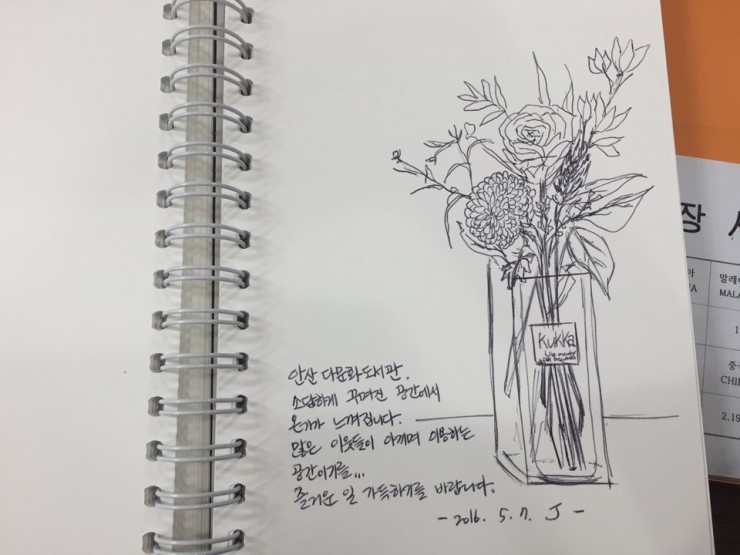 Kukka
안산 다문화도서관.
소담하게 꾸며진 공간에서
온기가 느껴집니다.
많은 이웃들이 아끼며 이용하는
공간이기를...
즐거운 일 가득하기를 바랍니다.
- 2016. 5. 7. J -
장 서
아 말레이
MALA
1
중
CHI
2.19